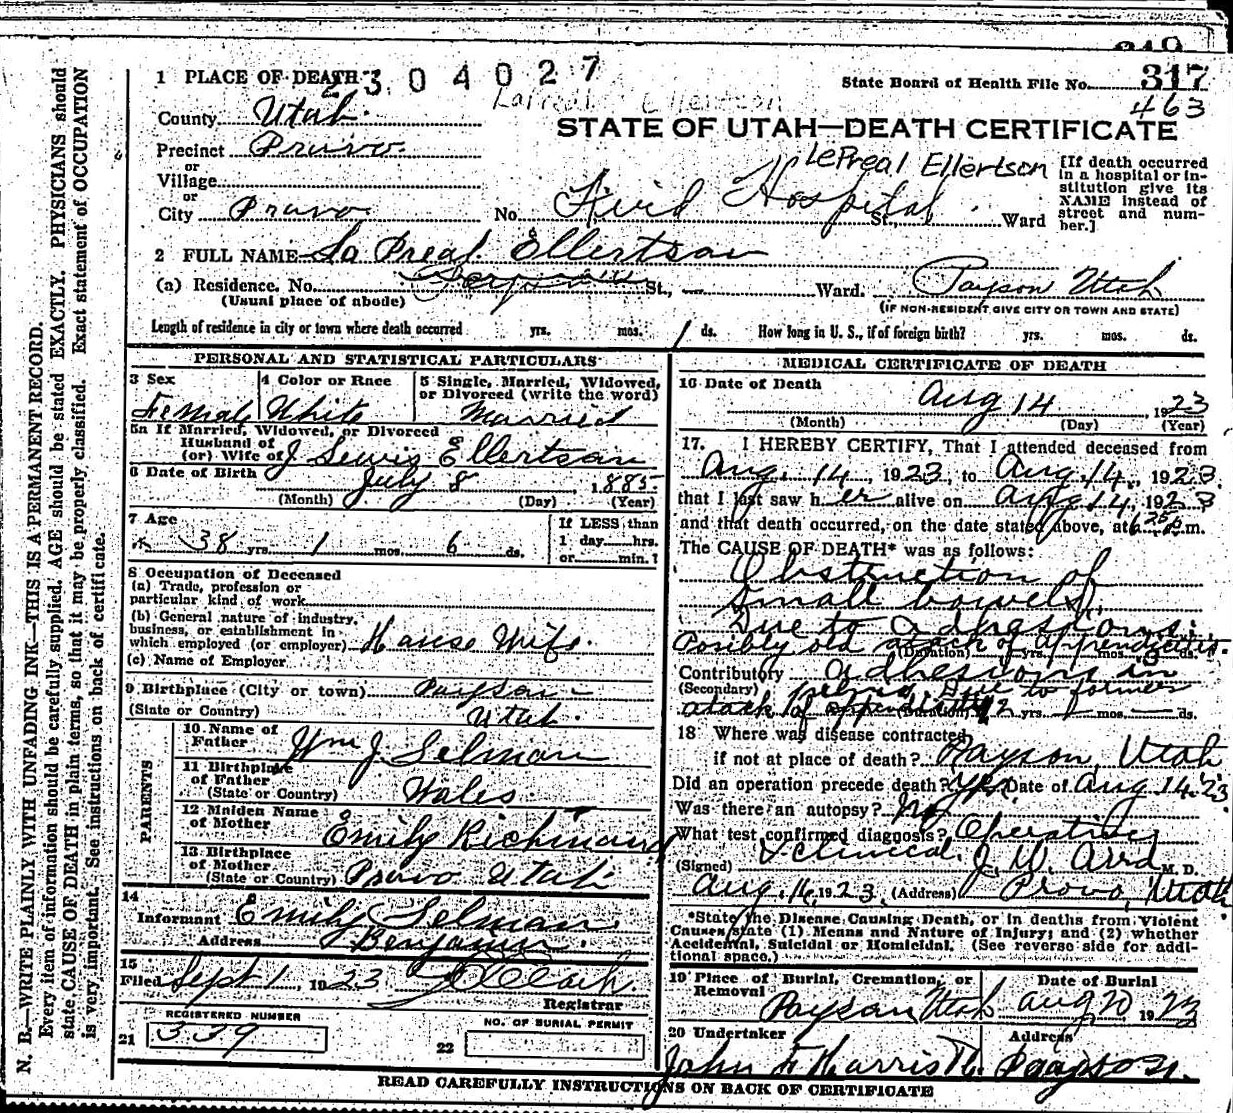 317
463
1 PLACE OF DEATH
2304027
State Board of Health File No. 317
LaPreal Ellertson
County Utah
STATE OF UTAH—DEATH CERTIFICATE
Precinct Pruvo
or
Village
or
City Pruvo No. Aird Hospital St., Ward
LePreal Ellertson
[If death occurred in a hospital or institution give its NAME instead of street and number.]
2 FULL NAME La Preal Ellertson
(a) Residence. No. St., Ward. Payson Utah
(Usual place of abode) (IF NON-RESIDENT GIVE CITY OR TOWN AND STATE)
Length of residence in city or town where death occurred yrs. mos. 1 ds. How long in U. S., if of foreign birth? yrs. mos. ds.
PERSONAL AND STATISTICAL PARTICULARS
3 Sex Female
4 Color or Race White
5 Single, Married, Widowed, or Divorced (write the word) Married
5a If Married, Widowed, or Divorced
Husband of
(or) Wife of J Lewis Ellertson
6 Date of Birth July 8 1885
(Month) (Day) (Year)
7 Age
38 yrs. 1 mos. 6 ds.
If LESS than
1 day hrs.
or min.?
8 Occupation of Deceased
(a) Trade, profession or
particular kind of work
(b) General nature of industry,
business, or establishment in
which employed (or employer) House Wife
(c) Name of Employer
9 Birthplace (City or town) Payson
(State or Country) Utah
PARENTS
10 Name of Father Wm J. Selman
11 Birthplace of Father
(State or Country) Wales
12 Maiden Name of Mother Emily Richmond
13 Birthplace of Mother
(State or Country) Pruvo Utah
14
Informant Emily Selman
Address Benjamin
15
Filed Sept 1, 1923
Registrar
21 REGISTERED NUMBER 339
22 NO. OF BURIAL PERMIT
MEDICAL CERTIFICATE OF DEATH
16 Date of Death Aug 14, 1923
(Month) (Day) (Year)
17. I HEREBY CERTIFY, That I attended deceased from
Aug. 14, 1923, to Aug 14, 1923,
that I last saw her alive on Aug 14, 1923
and that death occurred, on the date stated above, at 6 25 p.m.
The CAUSE OF DEATH* was as follows:
Obstruction of
small bowels,
Due to adhesions:
Posibly old attack of appendicitis.
(Duration) yrs. mos. 3 ds.
Contributory adhesions in
(Secondary) pelvis, Due to former
attack of appendicitis (Duration) 2 yrs. mos. — ds.
18 Where was disease contracted
if not at place of death? Payson, Utah
Did an operation precede death? Yes Date of Aug 14 '23
Was there an autopsy? No
What test confirmed diagnosis? Operative
& Clinical.
(Signed) J. W. Aird M. D.
Aug. 16, 1923, (Address) Provo, Utah
*State the Disease Causing Death, or in deaths from Violent
Causes, state (1) Means and Nature of Injury; and (2) whether
Accidental, Suicidal or Homicidal. (See reverse side for addi-
tional space.)
19 Place of Burial, Cremation, or Removal Payson Utah
Date of Burial Aug 20 1923
20 Undertaker John F Harris
Address Payson.
READ CAREFULLY INSTRUCTIONS ON BACK OF CERTIFICATE
N. B.—WRITE PLAINLY WITH UNFADING INK—THIS IS A PERMANENT RECORD.
Every item of information should be carefully supplied. AGE should be stated EXACTLY. PHYSICIANS should
state CAUSE OF DEATH in plain terms, so that it may be properly classified. Exact statement of OCCUPATION
is very important. See instructions on back of certificate.